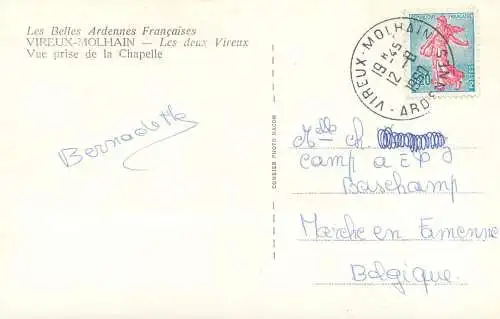 Les Belles Ardennes Françaises
VIREUX-MOLHAIN — Les deux Vireux
Vue prise de la Chapelle
Bernadette
COMBIER PHOTO MACON
VIREUX-MOLHAIN
19 45
12 - 8
1960
ARDENNES
REPUBLIQUE FRANÇAISE
0,20
POSTES
Melle Ch.
Camp a E
Baschamp
Marche en Famenne
Belgique.